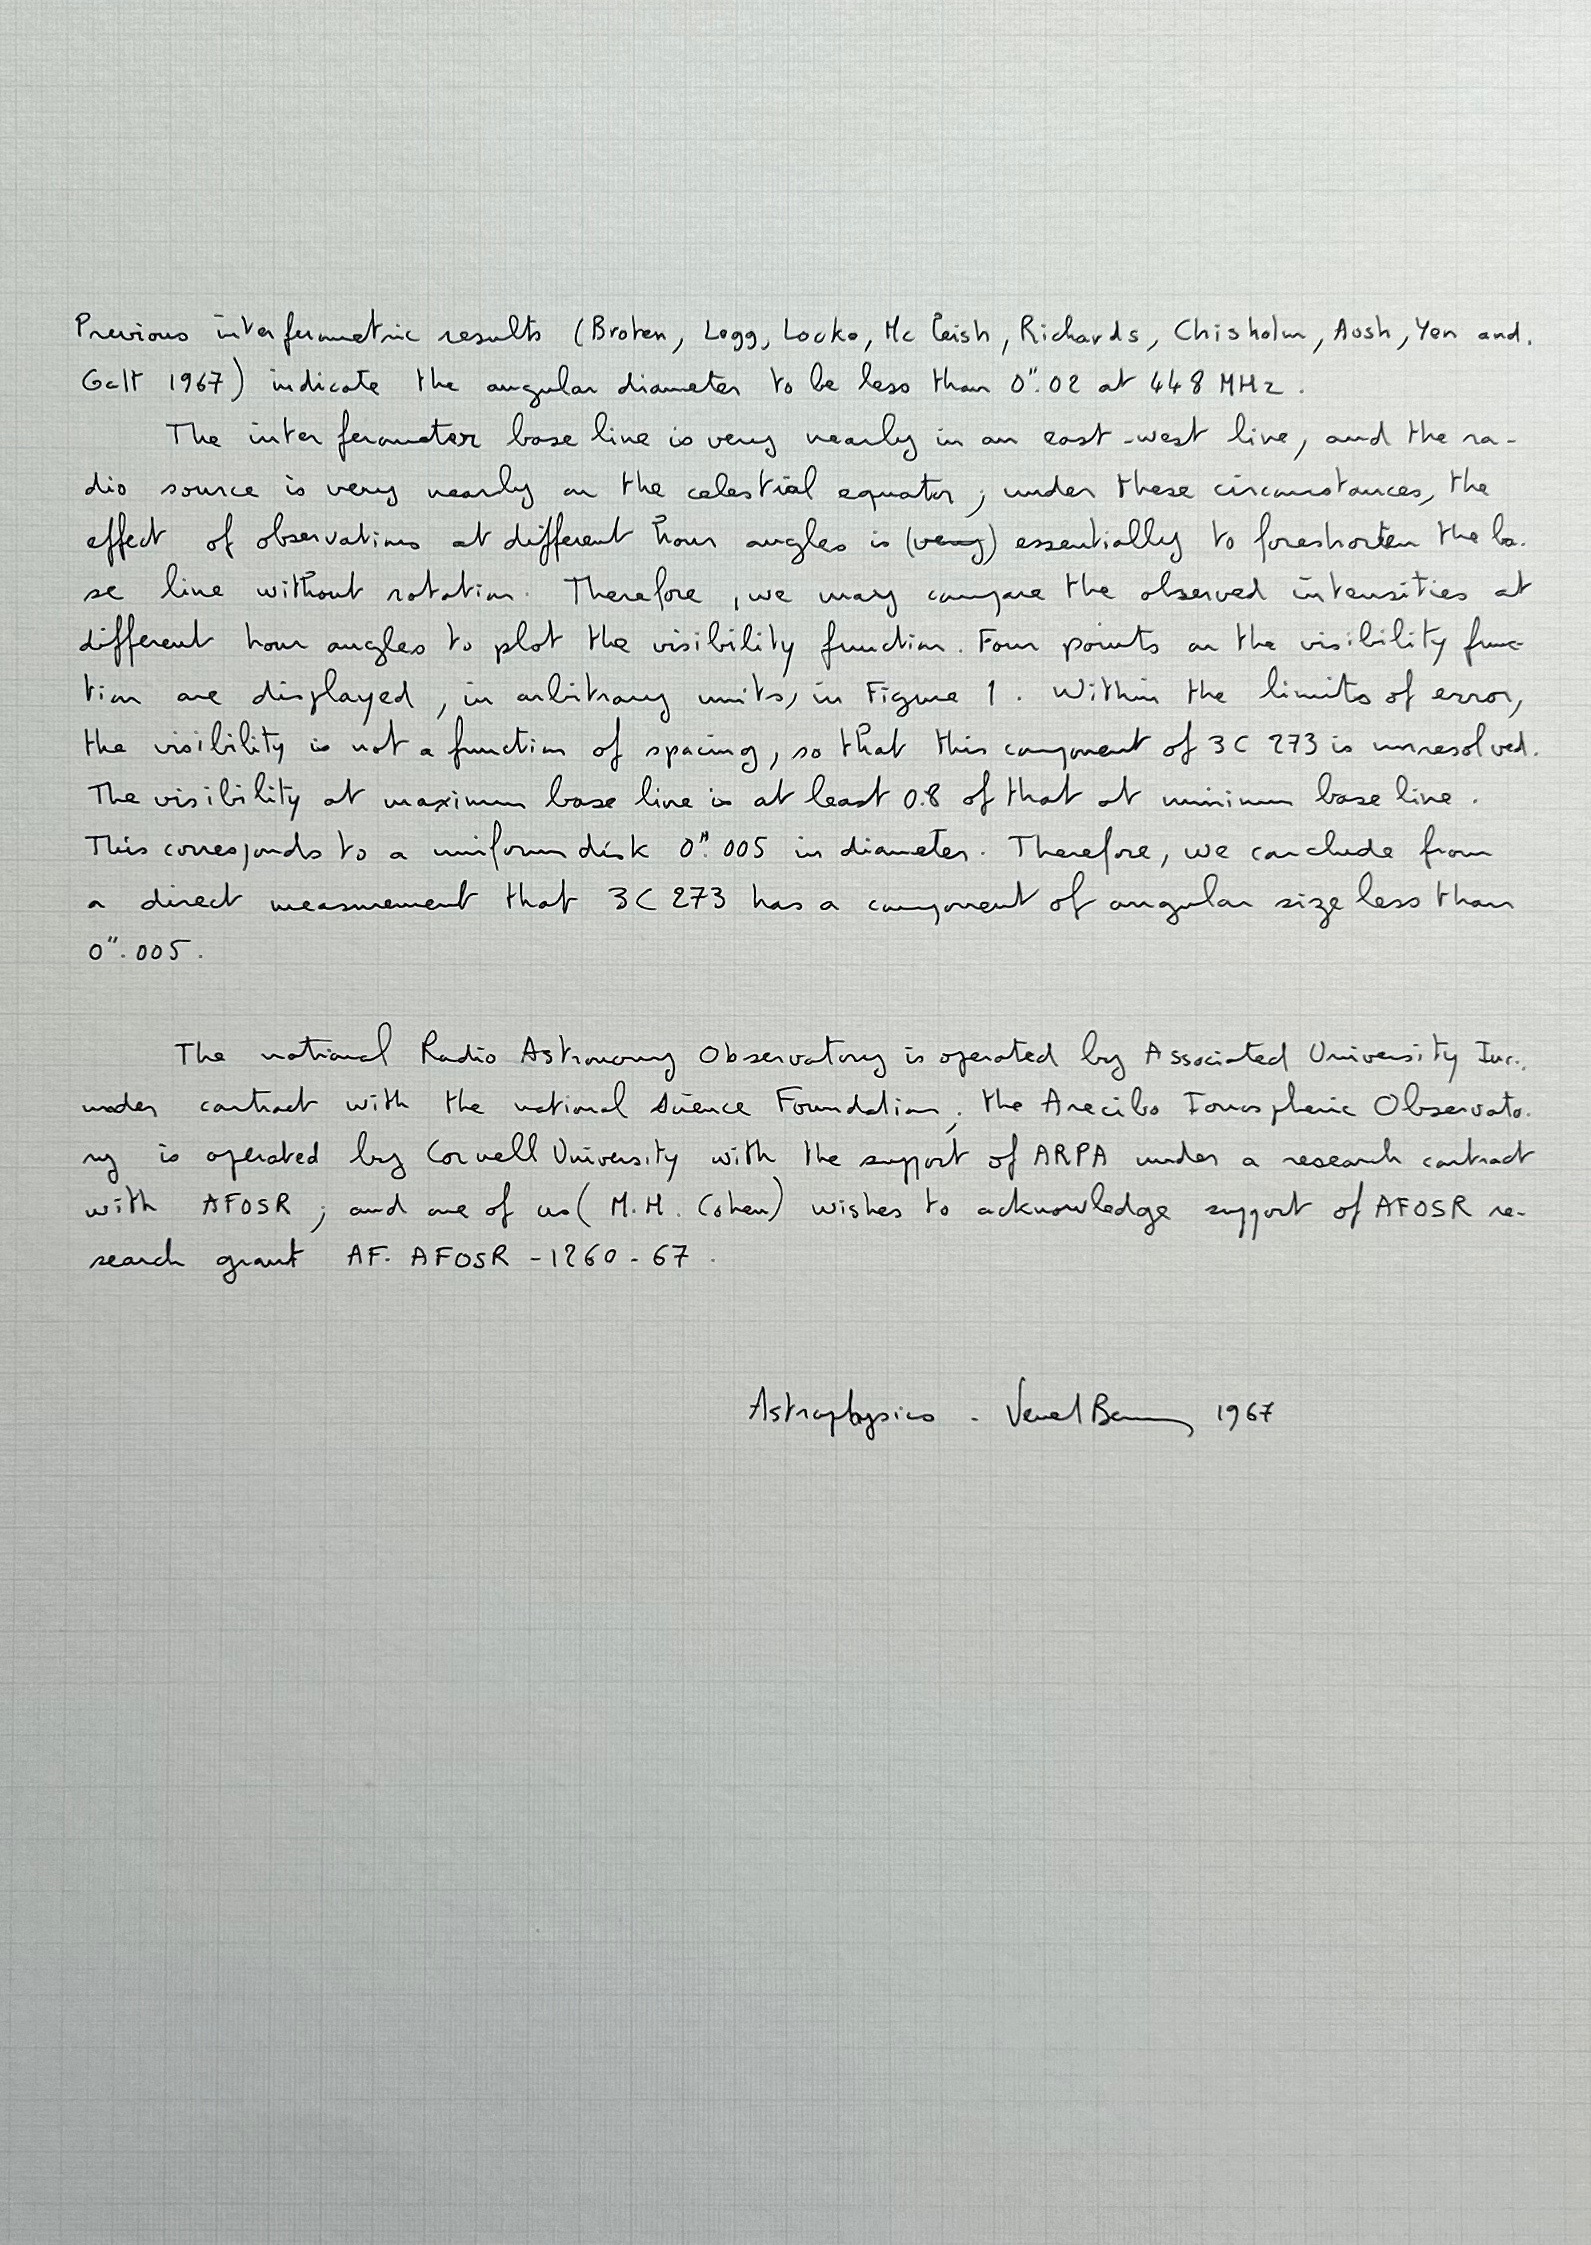 Previous interferometric results (Broten, Legg, Locke, Mc Leish, Richards, Chisholm, Aush, Yen and.
Galt 1967) indicate the angular diameter to be less than 0".02 at 448 MHz.
The interferometer base line is very nearly in an east-west line, and the ra-
dio source is very nearly on the celestial equator; under these circumstances, the
effect of observations at different hour angles is (very) essentially to foreshorten the ba-
se line without rotation. Therefore, we may compare the observed intensities at
different hour angles to plot the visibility function. Four points on the visibility func-
tion are displayed, in arbitrary units, in Figure 1. Within the limits of error,
the visibility is not a function of spacing, so that this component of 3C 273 is unresolved.
The visibility at maximum base line is at least 0.8 of that at minimum base line.
This corresponds to a uniform disk 0".005 in diameter. Therefore, we conclude from
a direct measurement that 3C 273 has a component of angular size less than
0".005.
The national Radio Astronomy Observatory is operated by Associated University Inc.,
under contract with the national Science Foundation; the Arecibo Ionospheric Observato-
ry is operated by Cornell University with the support of ARPA under a research contract
with AFOSR; and one of us (M.H. Cohen) wishes to acknowledge support of AFOSR re-
search grant AF. AFOSR -1260-67.
Astrophysics - 1967